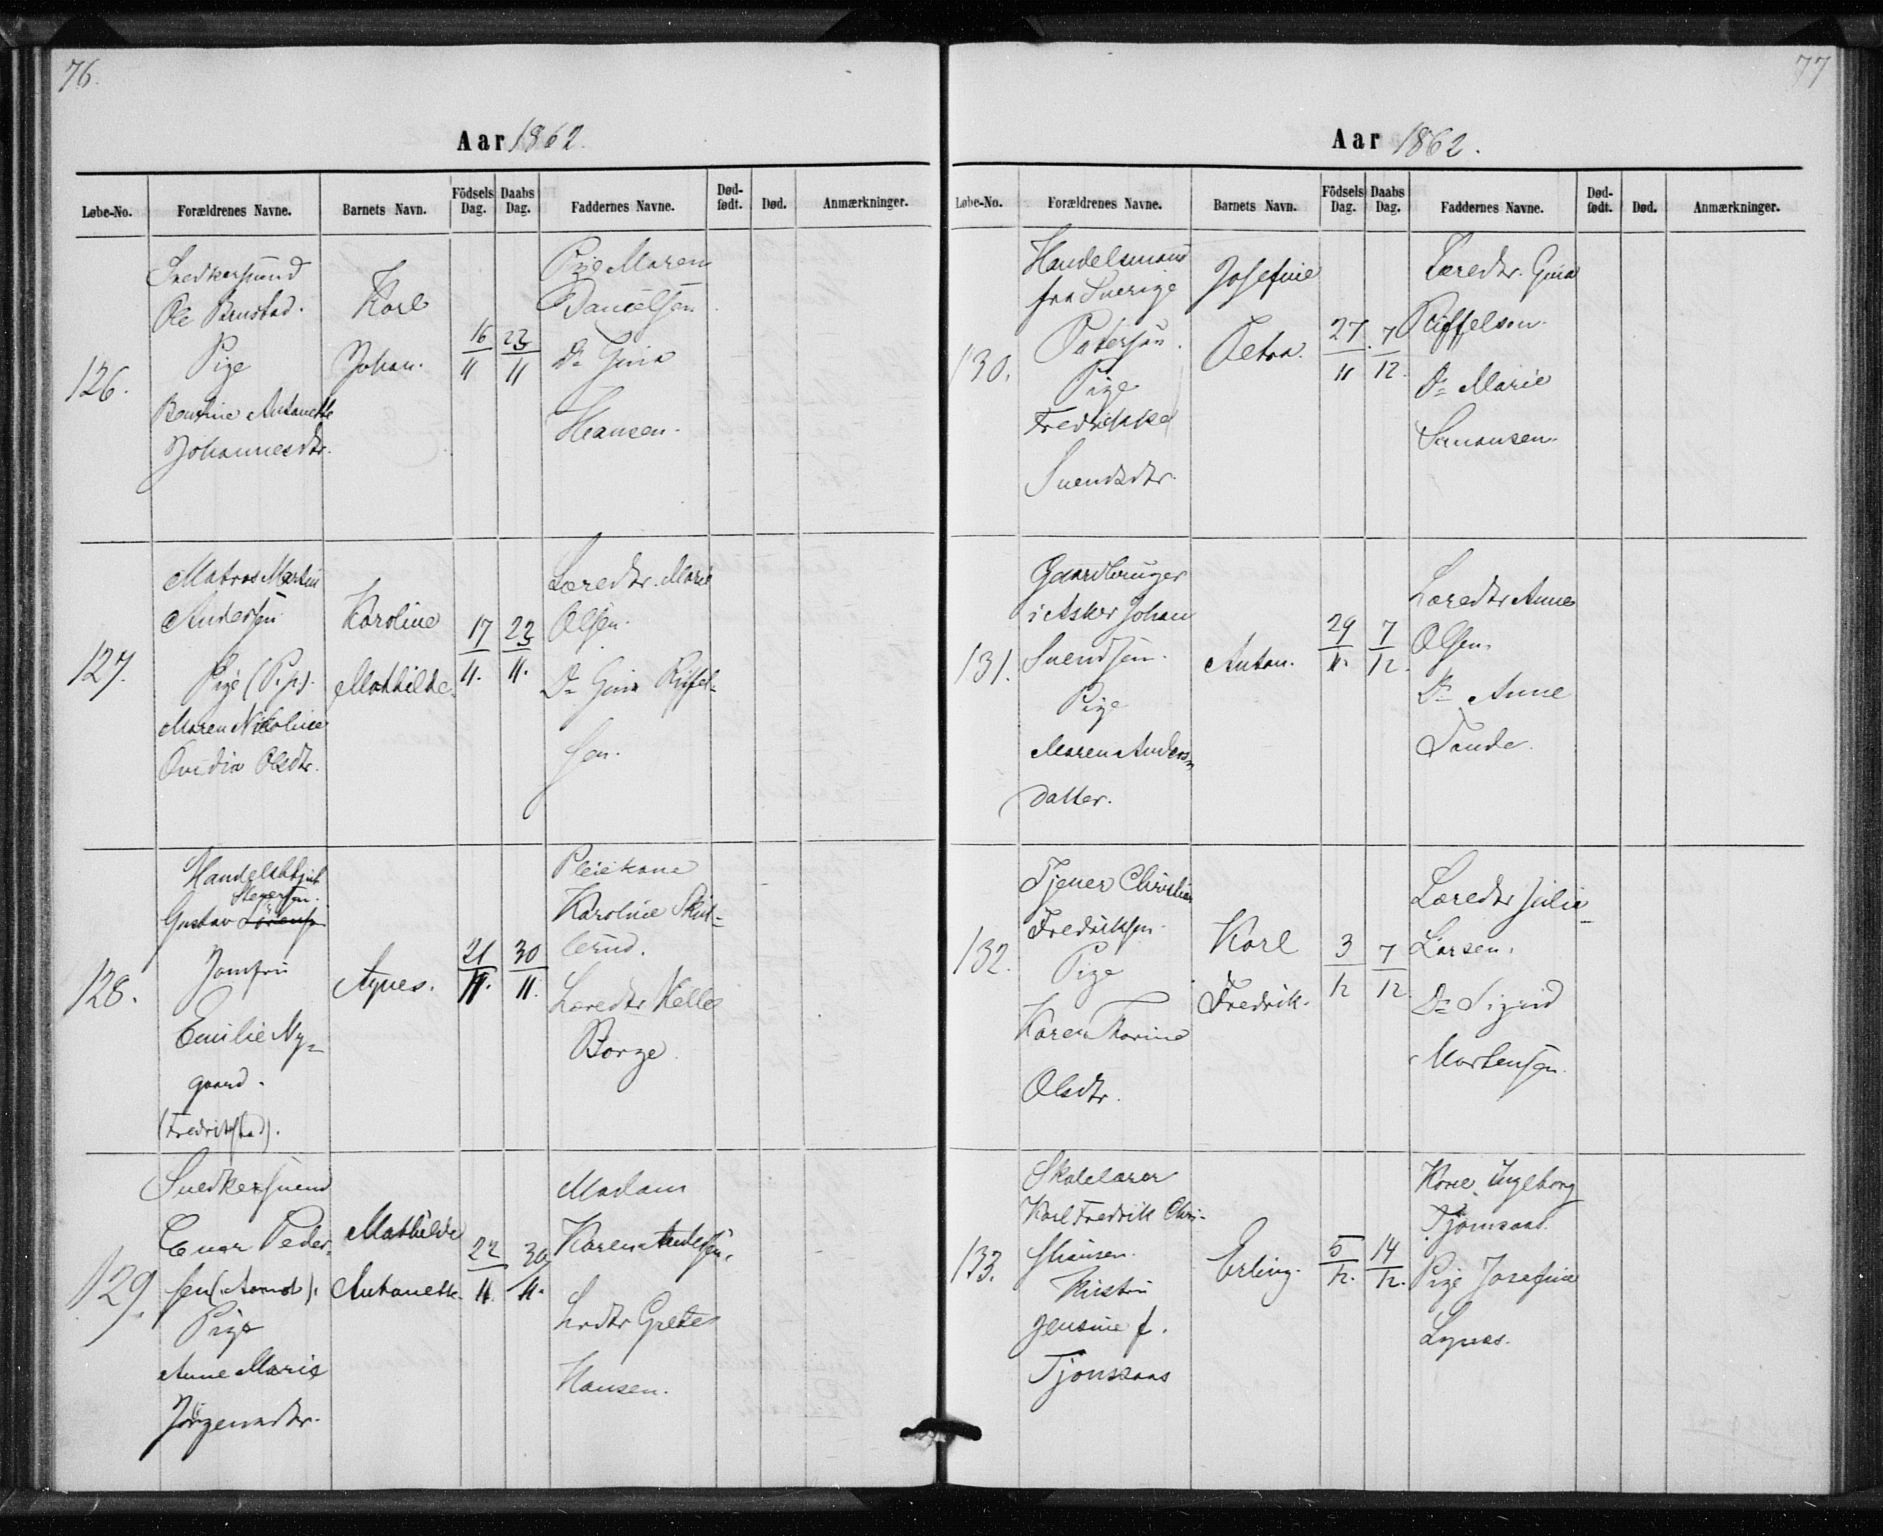 76.
Aar 1862.
Løbe-No. Forældrenes Navne. Barnets Navn. Födsels Dag. Daabs Dag. Faddernes Navne. Død-født. Død. Anmærkninger.
126.
Snedkersvend
Ole Brustad.
Pige
Antonette
Johannesdtr.
Karl
Johan.
16/11
23/11
Pige Maren
Danielsen
Do Gina
Hansen.
127.
Matros Martin
Andersen
Pige (P. p.).
Maren Nikoline
Ovidia Olsdtr.
Karoline
Mathilde.
17/11.
23/11.
Læredtr. Marie
Olsen.
Do Gina Riffel-
sen.
128.
Handelsbetjent
Stenersen.
Gustav Lorensen
Jomfru
Emilie Ny-
gaard.
(Fredrikstad).
Agnes.
21/11.
30/11.
Pleiekone
Karoline Skul-
lerud.
Læredtr Kelle
Borge.
129.
Snedkersvend
Enar Peder-
sen
Pige
Anne Marie
Jörgensdtr.
Mathilde
Antonette.
22/11.
30/11.
Madam
Karen Andersen.
Lrdtr Grete
Hansen.
77
Aar 1862.
Løbe-No. Forældrenes Navne. Barnets Navn. Födsels Dag. Daabs Dag. Faddernes Navne. Død-født. Død. Anmærkninger.
130.
Handelsmand
fra Sverige
Petersen.
Pige
Fredrikke
Svendsdtr.
Josefine
Petra.
27/11
7/12.
Læredtr. Gina
Riffelsen.
Do Marie
Simonsen.
131.
Gaardbruger
i Asker Johan
Svendsen.
Pige
Maren Anders-
datter.
Anton.
29/11.
7/12.
Læredtr Anne
Olsen.
Do Anne
Tande.
132.
Tjener Christian
Fredriksen.
Pige
Karen Thorine
Olsdtr.
Karl
Fredrik.
3/12
7/12.
Læredtr Julie
Larsen.
Do Sigrid
Mortensen.
133.
Skolelærer
Karl Fredrik Chri-
stiansen.
Kristin
Jensine f.
Tjonsaas
Erling.
5/12.
14/12.
Kone Ingeborg
Tjomsaas.
Pige Josefine